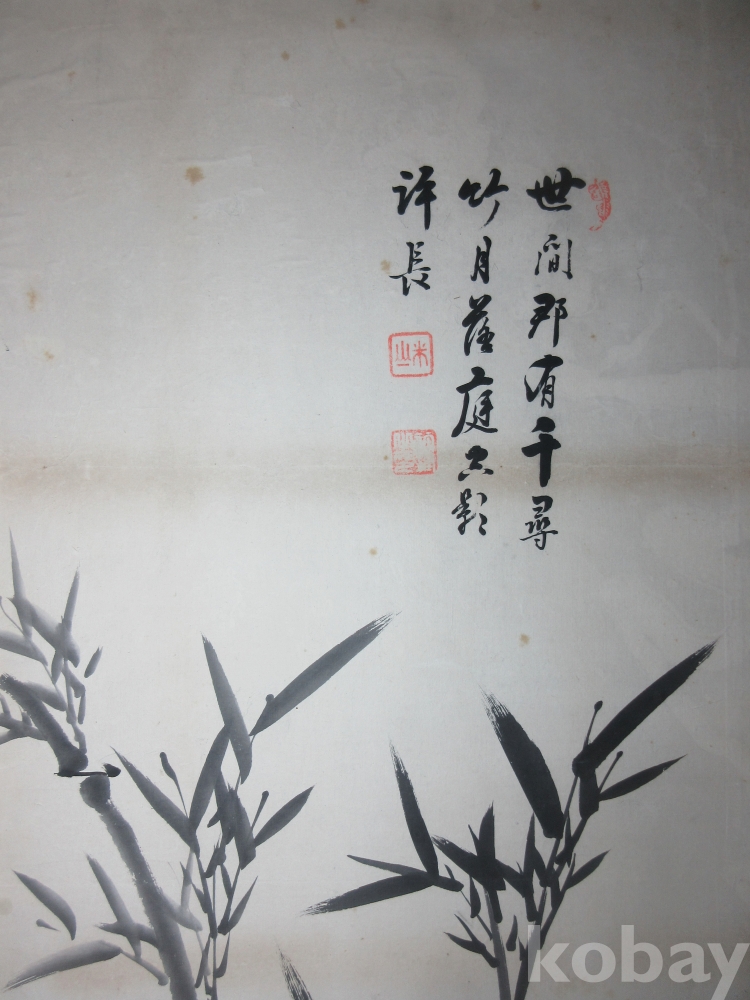 世間那有千尋
竹月落庭空影
許長
kobay